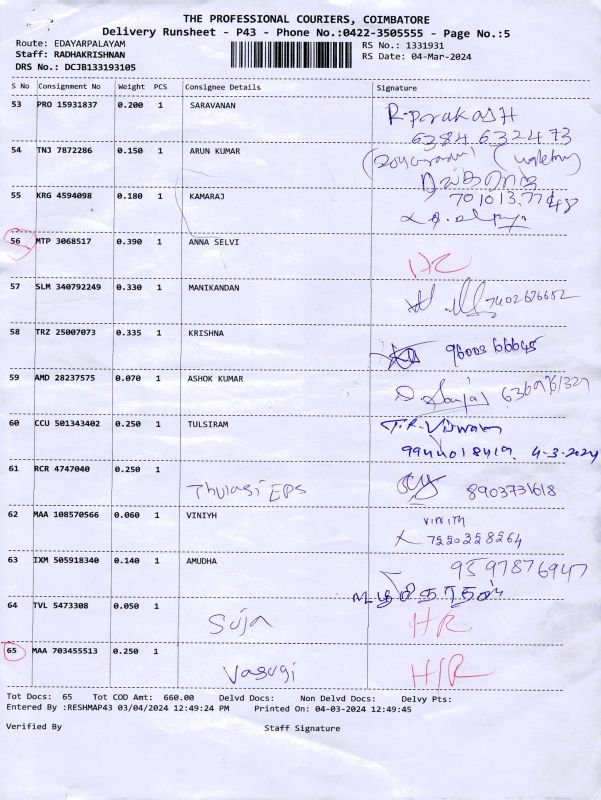 THE PROFESSIONAL COURIERS, COIMBATORE
Delivery Runsheet - P43 - Phone No.:0422-3505555 - Page No.:5
Route: EDAYARPALAYAM
Staff: RADHAKRISHNAN
DRS No.: DCJB133193105
RS No.: 1331931
RS Date: 04-Mar-2024
S No Consignment No Weight PCS Consignee Details Signature
53 PRO 15931837 0.200 1 SARAVANAN R-Prakash
6384632473
54 TNJ 7872286 0.150 1 ARUN KUMAR
55 KRG 4594098 0.180 1 KAMARAJ
56 MTP 3068517 0.390 1 ANNA SELVI
57 SLM 340792249 0.330 1 MANIKANDAN 7402676652
58 TRZ 25007073 0.335 1 KRISHNA 9600366645
59 AMD 28237575 0.070 1 ASHOK KUMAR
60 CCU 501343402 0.250 1 TULSIRAM
9944018419. 4-3-2024
61 RCR 4747040 0.250 1 Thulasi EPS 8903731618
62 MAA 108570566 0.060 1 VINIYH VINITH
7220228264
63 IXM 505918340 0.140 1 AMUDHA 9597876947
64 TVL 5473308 0.050 1 Suja HR
65 MAA 703455513 0.250 1 Vasugi H/R
Tot Docs: 65 Tot COD Amt: 660.00 Delvd Docs: Non Delvd Docs: Delvy Pts:
Entered By :RESHMAP43 03/04/2024 12:49:24 PM Printed On: 04-03-2024 12:49:45
Verified By Staff Signature